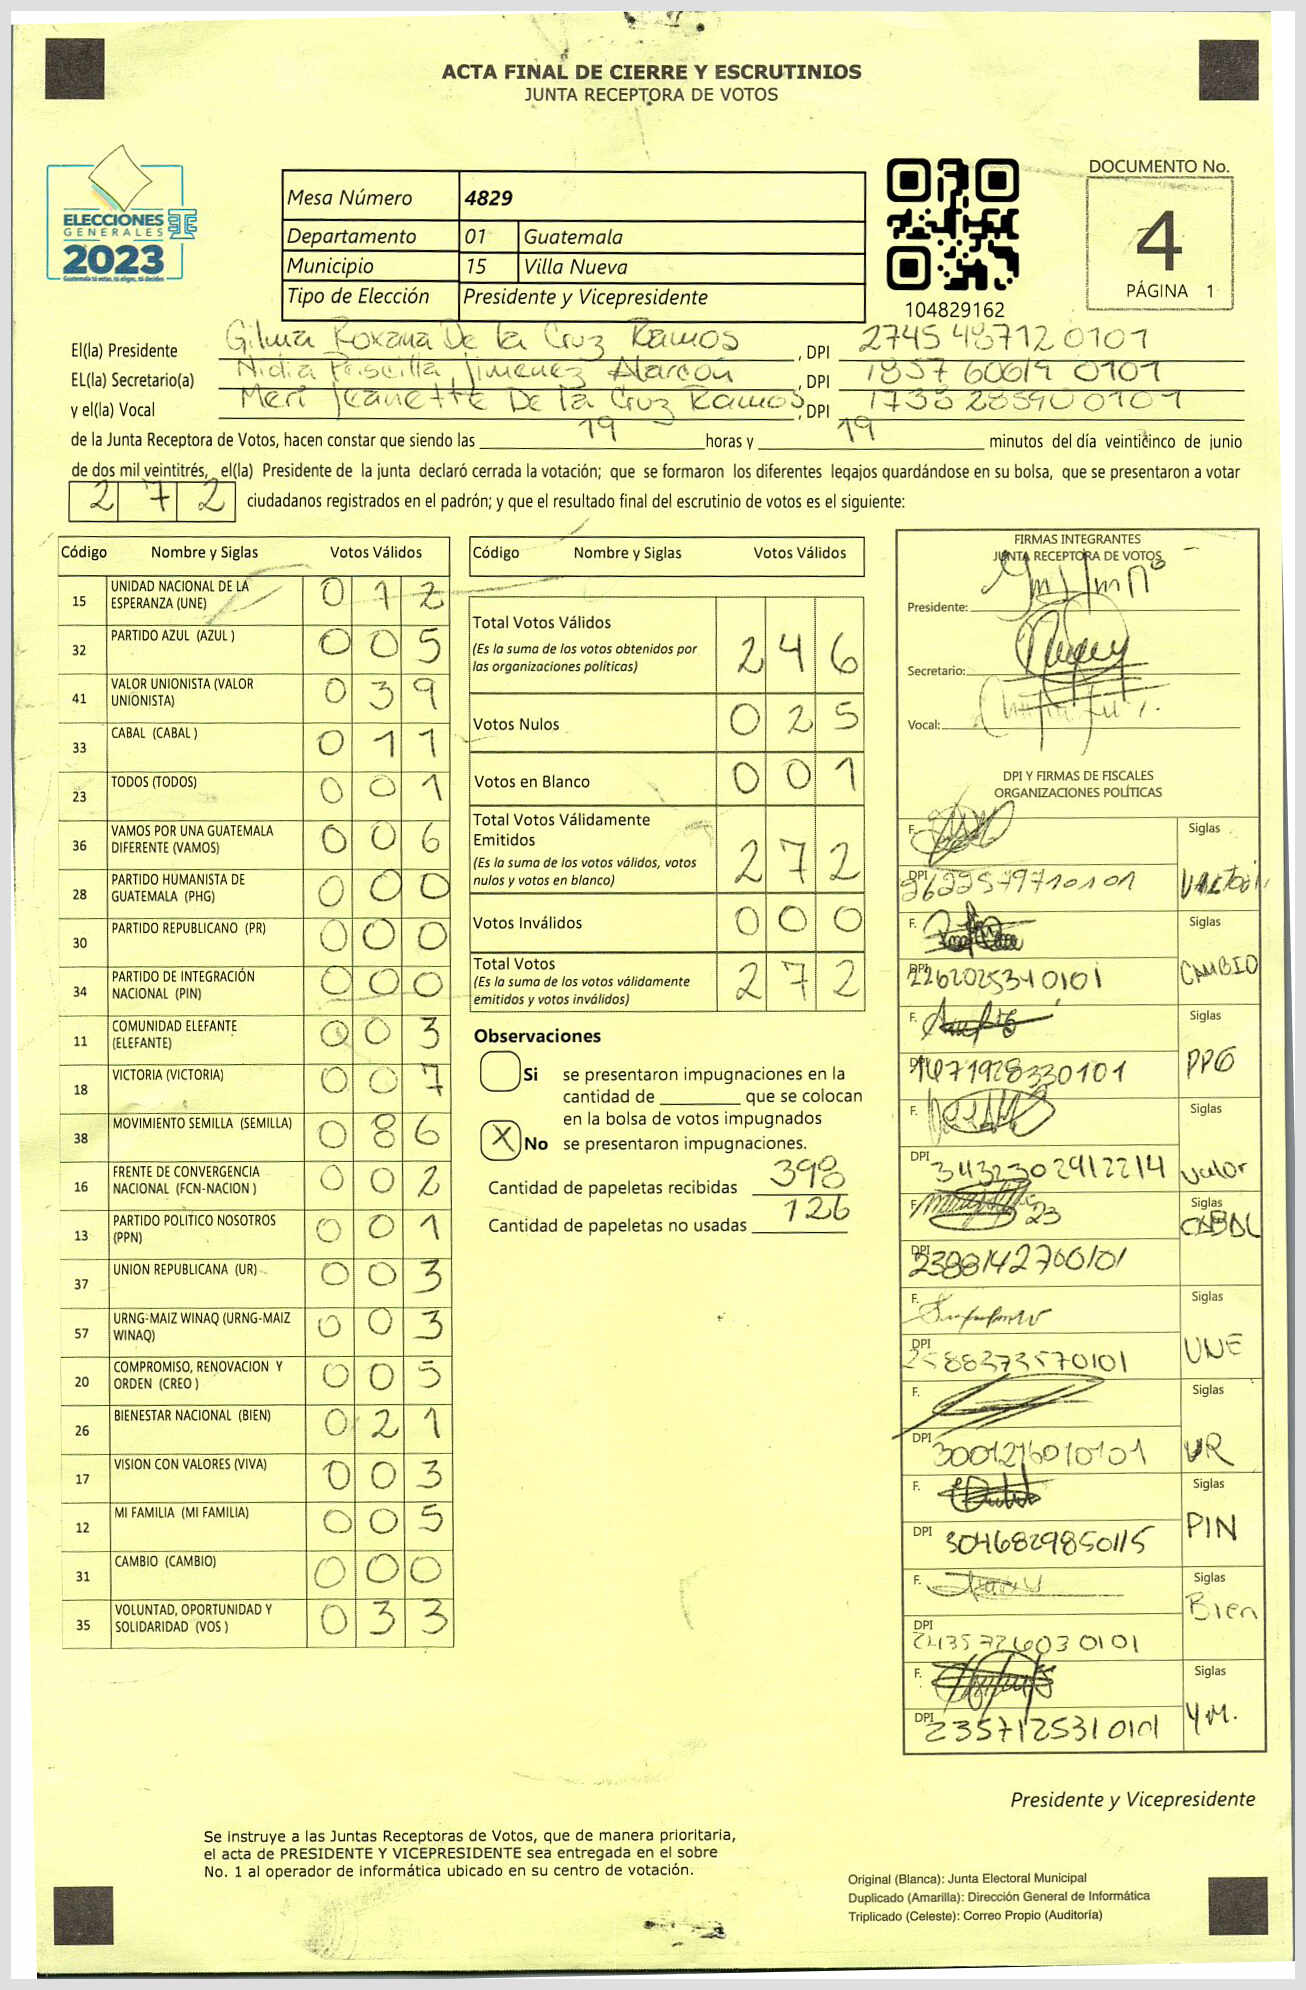 ACTA FINAL DE CIERRE Y ESCRUTINIOS
JUNTA RECEPTORA DE VOTOS
ELECCIONES
GENERALES
2023
Guatemala tú votas, tú eliges, tú decides
Mesa Número 4829
Departamento 01 Guatemala
Municipio 15 Villa Nueva
Tipo de Elección Presidente y Vicepresidente
104829162
DOCUMENTO No.
4
PÁGINA 1
El(la) Presidente Gilma Roxana De la Cruz Ramos , DPI 2745 48712 0101
EL(la) Secretario(a) Nidia Priscilla Jimenez Alarcón , DPI 1857 60619 0101
y el(la) Vocal Meri Jeanette De la Cruz Ramos , DPI 1735 28590 0101
de la Junta Receptora de Votos, hacen constar que siendo las 19 horas y 19 minutos del día veinticinco de junio
de dos mil veintitrés, el(la) Presidente de la junta declaró cerrada la votación; que se formaron los diferentes legajos guardándose en su bolsa, que se presentaron a votar
272 ciudadanos registrados en el padrón; y que el resultado final del escrutinio de votos es el siguiente:
Código Nombre y Siglas Votos Válidos
15 UNIDAD NACIONAL DE LA ESPERANZA (UNE) 012
32 PARTIDO AZUL (AZUL ) 005
41 VALOR UNIONISTA (VALOR UNIONISTA) 039
33 CABAL (CABAL ) 011
23 TODOS (TODOS) 001
36 VAMOS POR UNA GUATEMALA DIFERENTE (VAMOS) 006
28 PARTIDO HUMANISTA DE GUATEMALA (PHG) 000
30 PARTIDO REPUBLICANO (PR) 000
34 PARTIDO DE INTEGRACIÓN NACIONAL (PIN) 000
11 COMUNIDAD ELEFANTE (ELEFANTE) 003
18 VICTORIA (VICTORIA) 007
38 MOVIMIENTO SEMILLA (SEMILLA) 086
16 FRENTE DE CONVERGENCIA NACIONAL (FCN-NACION ) 002
13 PARTIDO POLITICO NOSOTROS (PPN) 001
37 UNION REPUBLICANA (UR) 003
57 URNG-MAIZ WINAQ (URNG-MAIZ WINAQ) 003
20 COMPROMISO, RENOVACION Y ORDEN (CREO ) 005
26 BIENESTAR NACIONAL (BIEN) 021
17 VISION CON VALORES (VIVA) 003
12 MI FAMILIA (MI FAMILIA) 005
31 CAMBIO (CAMBIO) 000
35 VOLUNTAD, OPORTUNIDAD Y SOLIDARIDAD (VOS ) 033
Código Nombre y Siglas Votos Válidos
Total Votos Válidos 246
(Es la suma de los votos obtenidos por
las organizaciones políticas)
Votos Nulos 025
Votos en Blanco 001
Total Votos Válidamente
Emitidos 272
(Es la suma de los votos válidos, votos
nulos y votos en blanco)
Votos Inválidos 000
Total Votos 272
(Es la suma de los votos válidamente
emitidos y votos inválidos)
Observaciones
Si se presentaron impugnaciones en la
cantidad de ________ que se colocan
en la bolsa de votos impugnados
X No se presentaron impugnaciones.
Cantidad de papeletas recibidas 398
Cantidad de papeletas no usadas 126
FIRMAS INTEGRANTES
JUNTA RECEPTORA DE VOTOS
Presidente:
Secretario:
Vocal:
DPI Y FIRMAS DE FISCALES
ORGANIZACIONES POLÍTICAS
F. Siglas
DPI 2622579710101
F. Siglas CAMBIO
DPI 2262025340101
F. Siglas PPG
DPI 1671928330101
F. Siglas Valor
DPI 3432302412214
F. 23 Siglas CABAL
DPI 2388142700101
F. Siglas UNE
DPI 2588373570101
F. Siglas UR
DPI 3001276010101
F. Siglas PIN
DPI 3046829850115
F. Siglas Bien
DPI 2435726030101
F. Siglas Y.M.
DPI 2357125310101
Presidente y Vicepresidente
Se instruye a las Juntas Receptoras de Votos, que de manera prioritaria,
el acta de PRESIDENTE Y VICEPRESIDENTE sea entregada en el sobre
No. 1 al operador de informática ubicado en su centro de votación.
Original (Blanca): Junta Electoral Municipal
Duplicado (Amarilla): Dirección General de Informática
Triplicado (Celeste): Correo Propio (Auditoría)